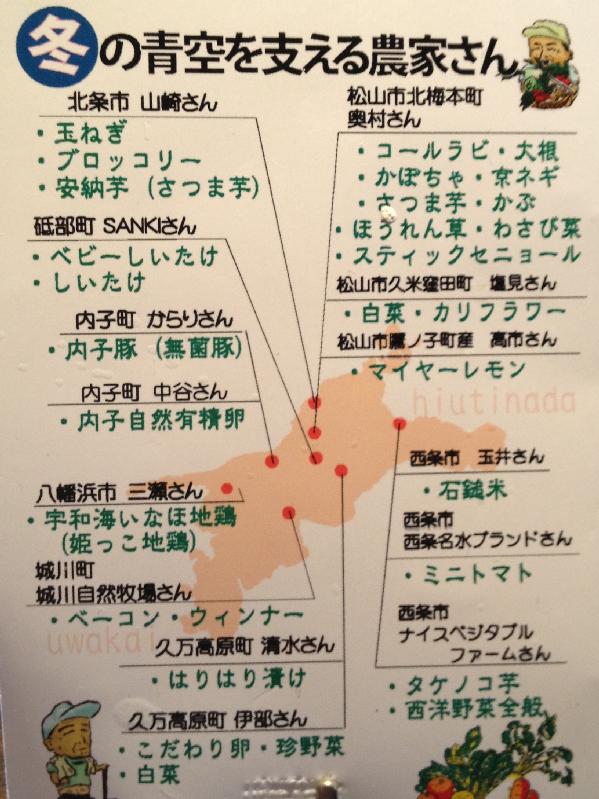 冬の青空を支える農家さん
北条市 山崎さん
・玉ねぎ
・ブロッコリー
・安納芋（さつま芋）
砥部町 SANKIさん
・ベビーしいたけ
・しいたけ
内子町 からりさん
・内子豚（無菌豚）
内子町 中谷さん
・内子自然有精卵
八幡浜市 三瀬さん
・宇和海いなほ地鶏
（姫っこ地鶏）
城川町
城川自然牧場さん
・ベーコン・ウィンナー
久万高原町 清水さん
・はりはり漬け
久万高原町 伊部さん
・こだわり卵・珍野菜
・白菜
松山市北梅本町
奥村さん
・コールラビ・大根
・かぼちゃ・京ネギ
・さつま芋・かぶ
・ほうれん草・わさび菜
・スティックセニョール
松山市久米窪田町 塩見さん
・白菜・カリフラワー
松山市鷹ノ子町産 高市さん
・マイヤーレモン
hiutinada
西条市 玉井さん
・石鎚米
西条市
西条名水ブランドさん
・ミニトマト
西条市
ナイスベジタブル
ファームさん
・タケノコ芋
・西洋野菜全般
uwakai